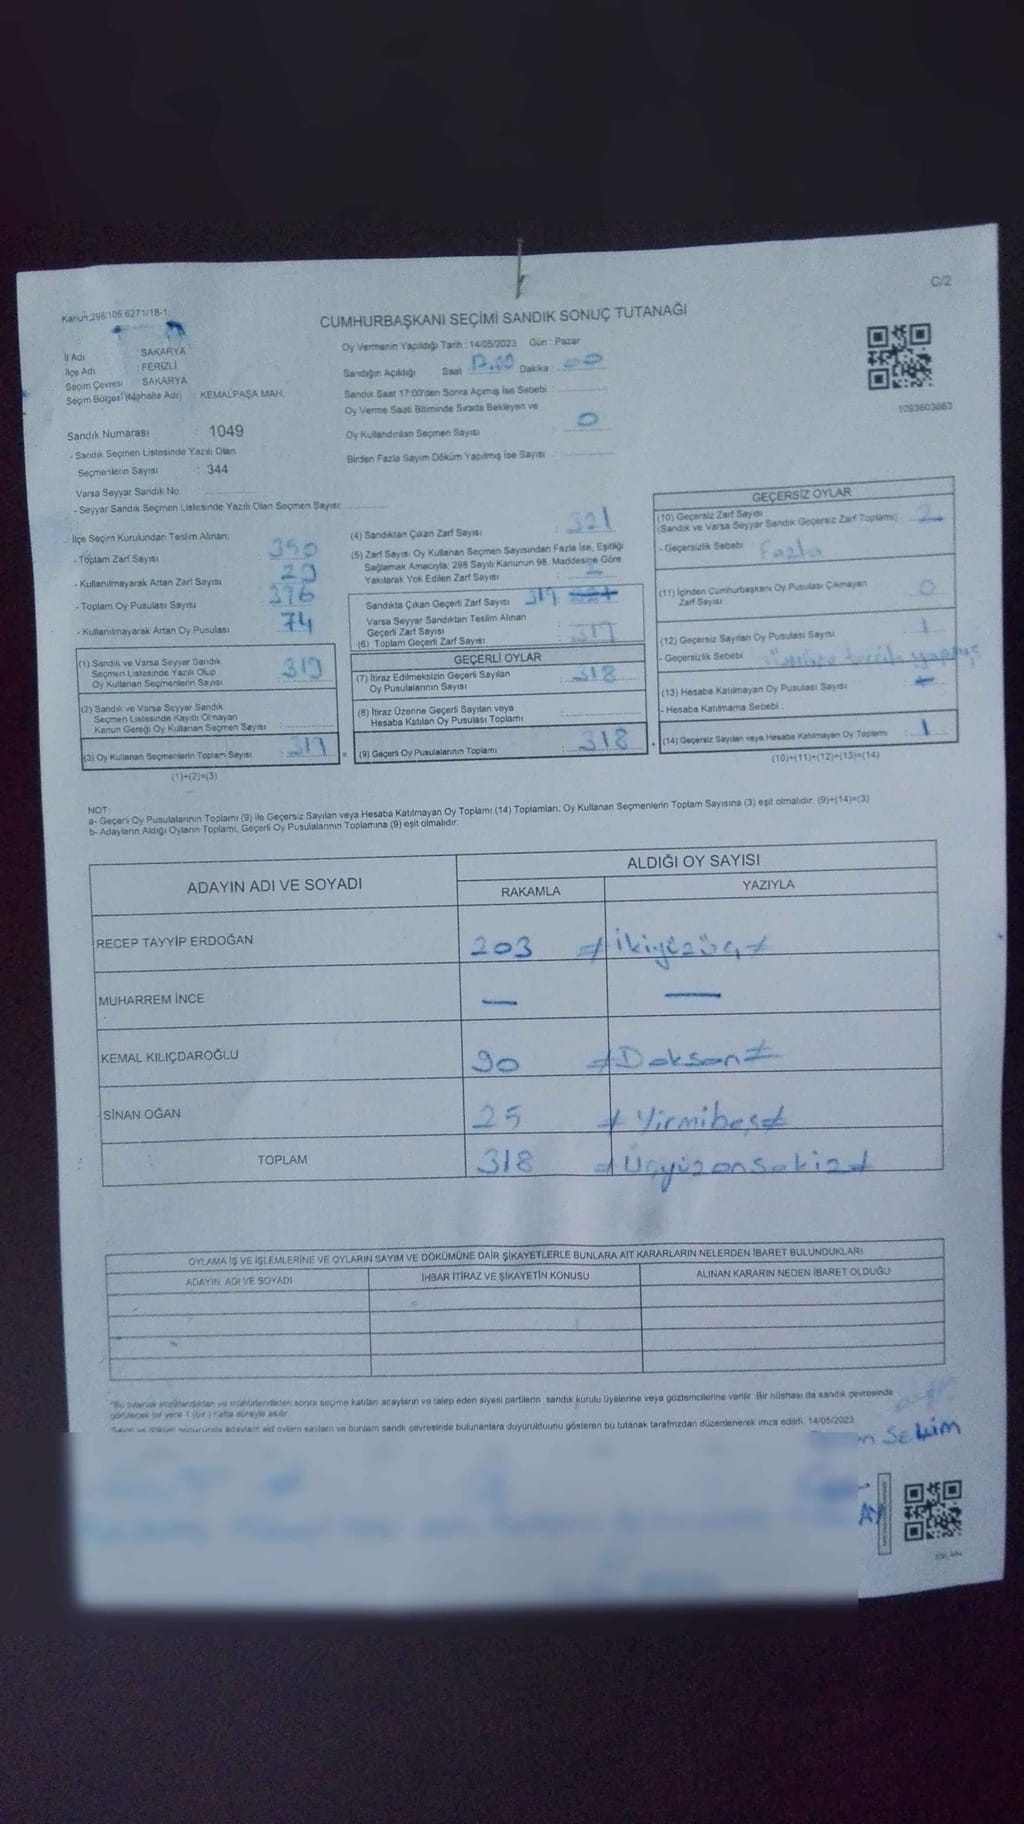 C/2
Kanun;298/105 6271/18-1
CUMHURBAŞKANI SEÇİMİ SANDIK SONUÇ TUTANAĞI
İl Adı SAKARYA
İlçe Adı : FERİZLİ
Seçim Çevresi SAKARYA
Seçim Bölgesi (Mahalle Adı) : KEMALPAŞA MAH.
Sandık Numarası : 1049
- Sandık Seçmen Listesinde Yazılı Olan
Seçmenlerin Sayısı : 344
Varsa Seyyar Sandık No
- Seyyar Sandık Seçmen Listesinde Yazılı Olan Seçmen Sayısı
Oy Vermenin Yapıldığı Tarih : 14/05/2023 Gün : Pazar
Sandığın Açıldığı Saat 17.00 Dakika : 00
Sandık Saat 17:00'den Sonra Açımış İse Sebebi :
Oy Verme Saati Bitiminde Sırada Bekleyen ve
Oy Kullandırılan Seçmen Sayısı : 0
Birden Fazla Sayım Döküm Yapılmış İse Sayısı
1093603663
İlçe Seçim Kurulundan Teslim Alınan;
- Toplam Zarf Sayısı : 350
- Kullanılmayarak Artan Zarf Sayısı : 29
- Toplam Oy Pusulası Sayısı : 376
- Kullanılmayarak Artan Oy Pusulası 74
(1) Sandık ve Varsa Seyyar Sandık
Seçmen Listesinde Yazılı Olup
Oy Kullanan Seçmenlerin Sayısı : 319
(2) Sandık ve Varsa Seyyar Sandık
Seçmen Listesinde Kayıtlı Olmayan
Kanun Gereği Oy Kullanan Seçmen Sayısı :
(3) Oy Kullanan Seçmenlerin Toplam Sayısı : 319
(1)+(2)=(3)
(4) Sandıktan Çıkan Zarf Sayısı : 321
(5) Zarf Sayısı, Oy Kullanan Seçmen Sayısından Fazla İse, Eşitliği
Sağlamak Amacıyla; 298 Sayılı Kanunun 98. Maddesine Göre
Yakılarak Yok Edilen Zarf Sayısı :
Sandıkta Çıkan Geçerli Zarf Sayısı 319
Varsa Seyyar Sandıktan Teslim Alınan
Geçerli Zarf Sayısı
(6) Toplam Geçerli Zarf Sayısı : 319
GEÇERLİ OYLAR
(7) İtiraz Edilmeksizin Geçerli Sayılan
Oy Pusulalarının Sayısı : 318
(8) İtiraz Üzerine Geçerli Sayılan veya
Hesaba Katılan Oy Pusulası Toplamı :
= (9) Geçerli Oy Pusulalarının Toplamı : 318 +
GEÇERSİZ OYLAR
(10) Geçersiz Zarf Sayısı
(Sandık ve Varsa Seyyar Sandık Geçersiz Zarf Toplamı) : 2
- Geçersizlik Sebebi : Fazla
(11) İçinden Cumhurbaşkanı Oy Pusulası Çıkmayan
Zarf Sayısı : 0
(12) Geçersiz Sayılan Oy Pusulası Sayısı : 1
- Geçersizlik Sebebi
(13) Hesaba Katılmayan Oy Pusulası Sayısı :
- Hesaba Katılmama Sebebi :
(14) Geçersiz Sayılan veya Hesaba Katılmayan Oy Toplamı : 1
(10)+(11)+(12)+(13)=(14)
NOT:
a- Geçerli Oy Pusulalarının Toplamı (9) ile Geçersiz Sayılan veya Hesaba Katılmayan Oy Toplamı (14) Toplamları, Oy Kullanan Seçmenlerin Toplam Sayısına (3) eşit olmalıdır. (9)+(14)=(3)
b- Adayların Aldığı Oyların Toplamı, Geçerli Oy Pusulalarının Toplamına (9) eşit olmalıdır.
ADAYIN ADI VE SOYADI ALDIĞI OY SAYISI
RAKAMLA YAZIYLA
RECEP TAYYİP ERDOĞAN 203 ≠ İkiyüzüç ≠
MUHARREM İNCE — —
KEMAL KILIÇDAROĞLU 90 ≠ Doksan ≠
SİNAN OĞAN 25 ≠ Yirmibeş ≠
TOPLAM 318 ≠ Üçyüzonsekiz ≠
OYLAMA İŞ VE İŞLEMLERİNE VE OYLARIN SAYIM VE DÖKÜMÜNE DAİR ŞİKAYETLERLE BUNLARA AİT KARARLARIN NELERDEN İBARET BULUNDUKLARI
ADAYIN ADI VE SOYADI İHBAR İTİRAZ VE ŞİKAYETİN KONUSU ALINAN KARARIN NEDEN İBARET OLDUĞU
*Bu tutanak imzalandıktan ve mühürlendikten sonra seçime katılan adayların ve talep eden siyasi partilerin sandık kurulu üyelerine veya gözlemcilerine verilir. Bir nüshası da sandık çevresinde
görülecek bir yere 1 (bir) hafta süreyle asılır.
ve bunların sandık çevresinde bulunanlara duyurulduunu gösteren bu tutanak tarafımzdan düzenlenerek imza edildi. 14/05/2023